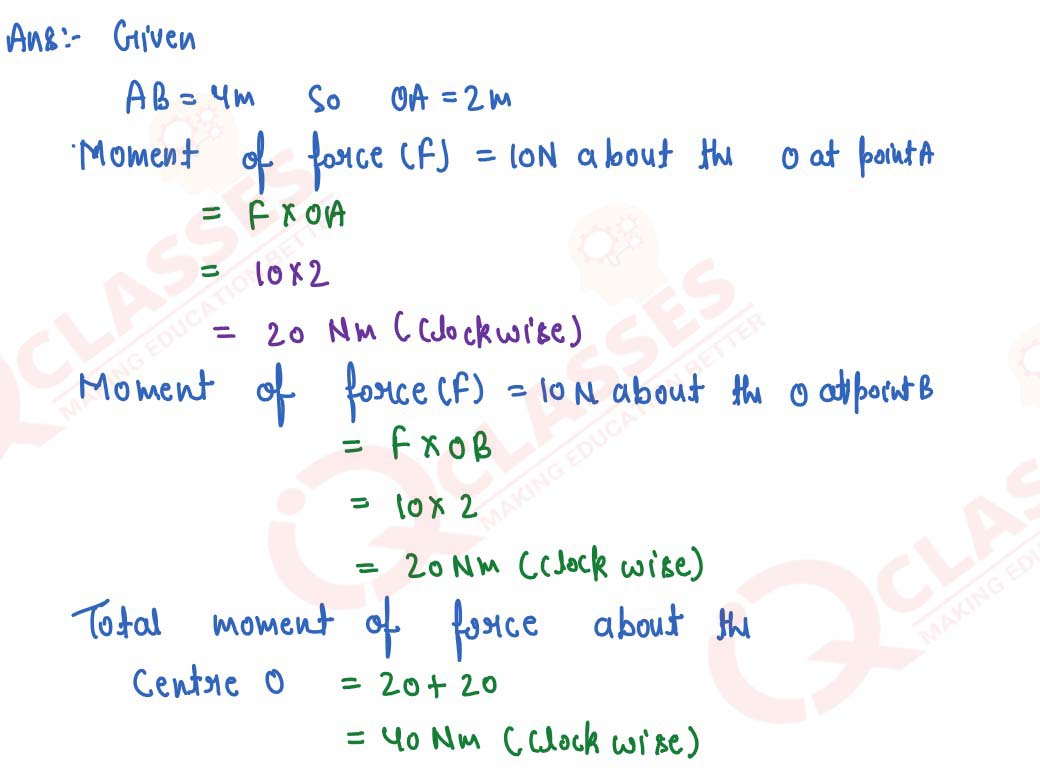 Ans:- Given
AB = 4m So OA = 2m
Moment of force (F) = 10N about the O at point A
= F × OA
= 10×2
= 20 Nm (Clockwise)
Moment of force (F) = 10N about the O at point B
= F × OB
= 10× 2
= 20 Nm (Clock wise)
Total moment of force about the
Centre O = 20 + 20
= 40 Nm (Clock wise)
CLASSES
MAKING EDUCATION BETTER
CLASSES
MAKING EDUCATION BETTER
CLASSES
MAKING EDU